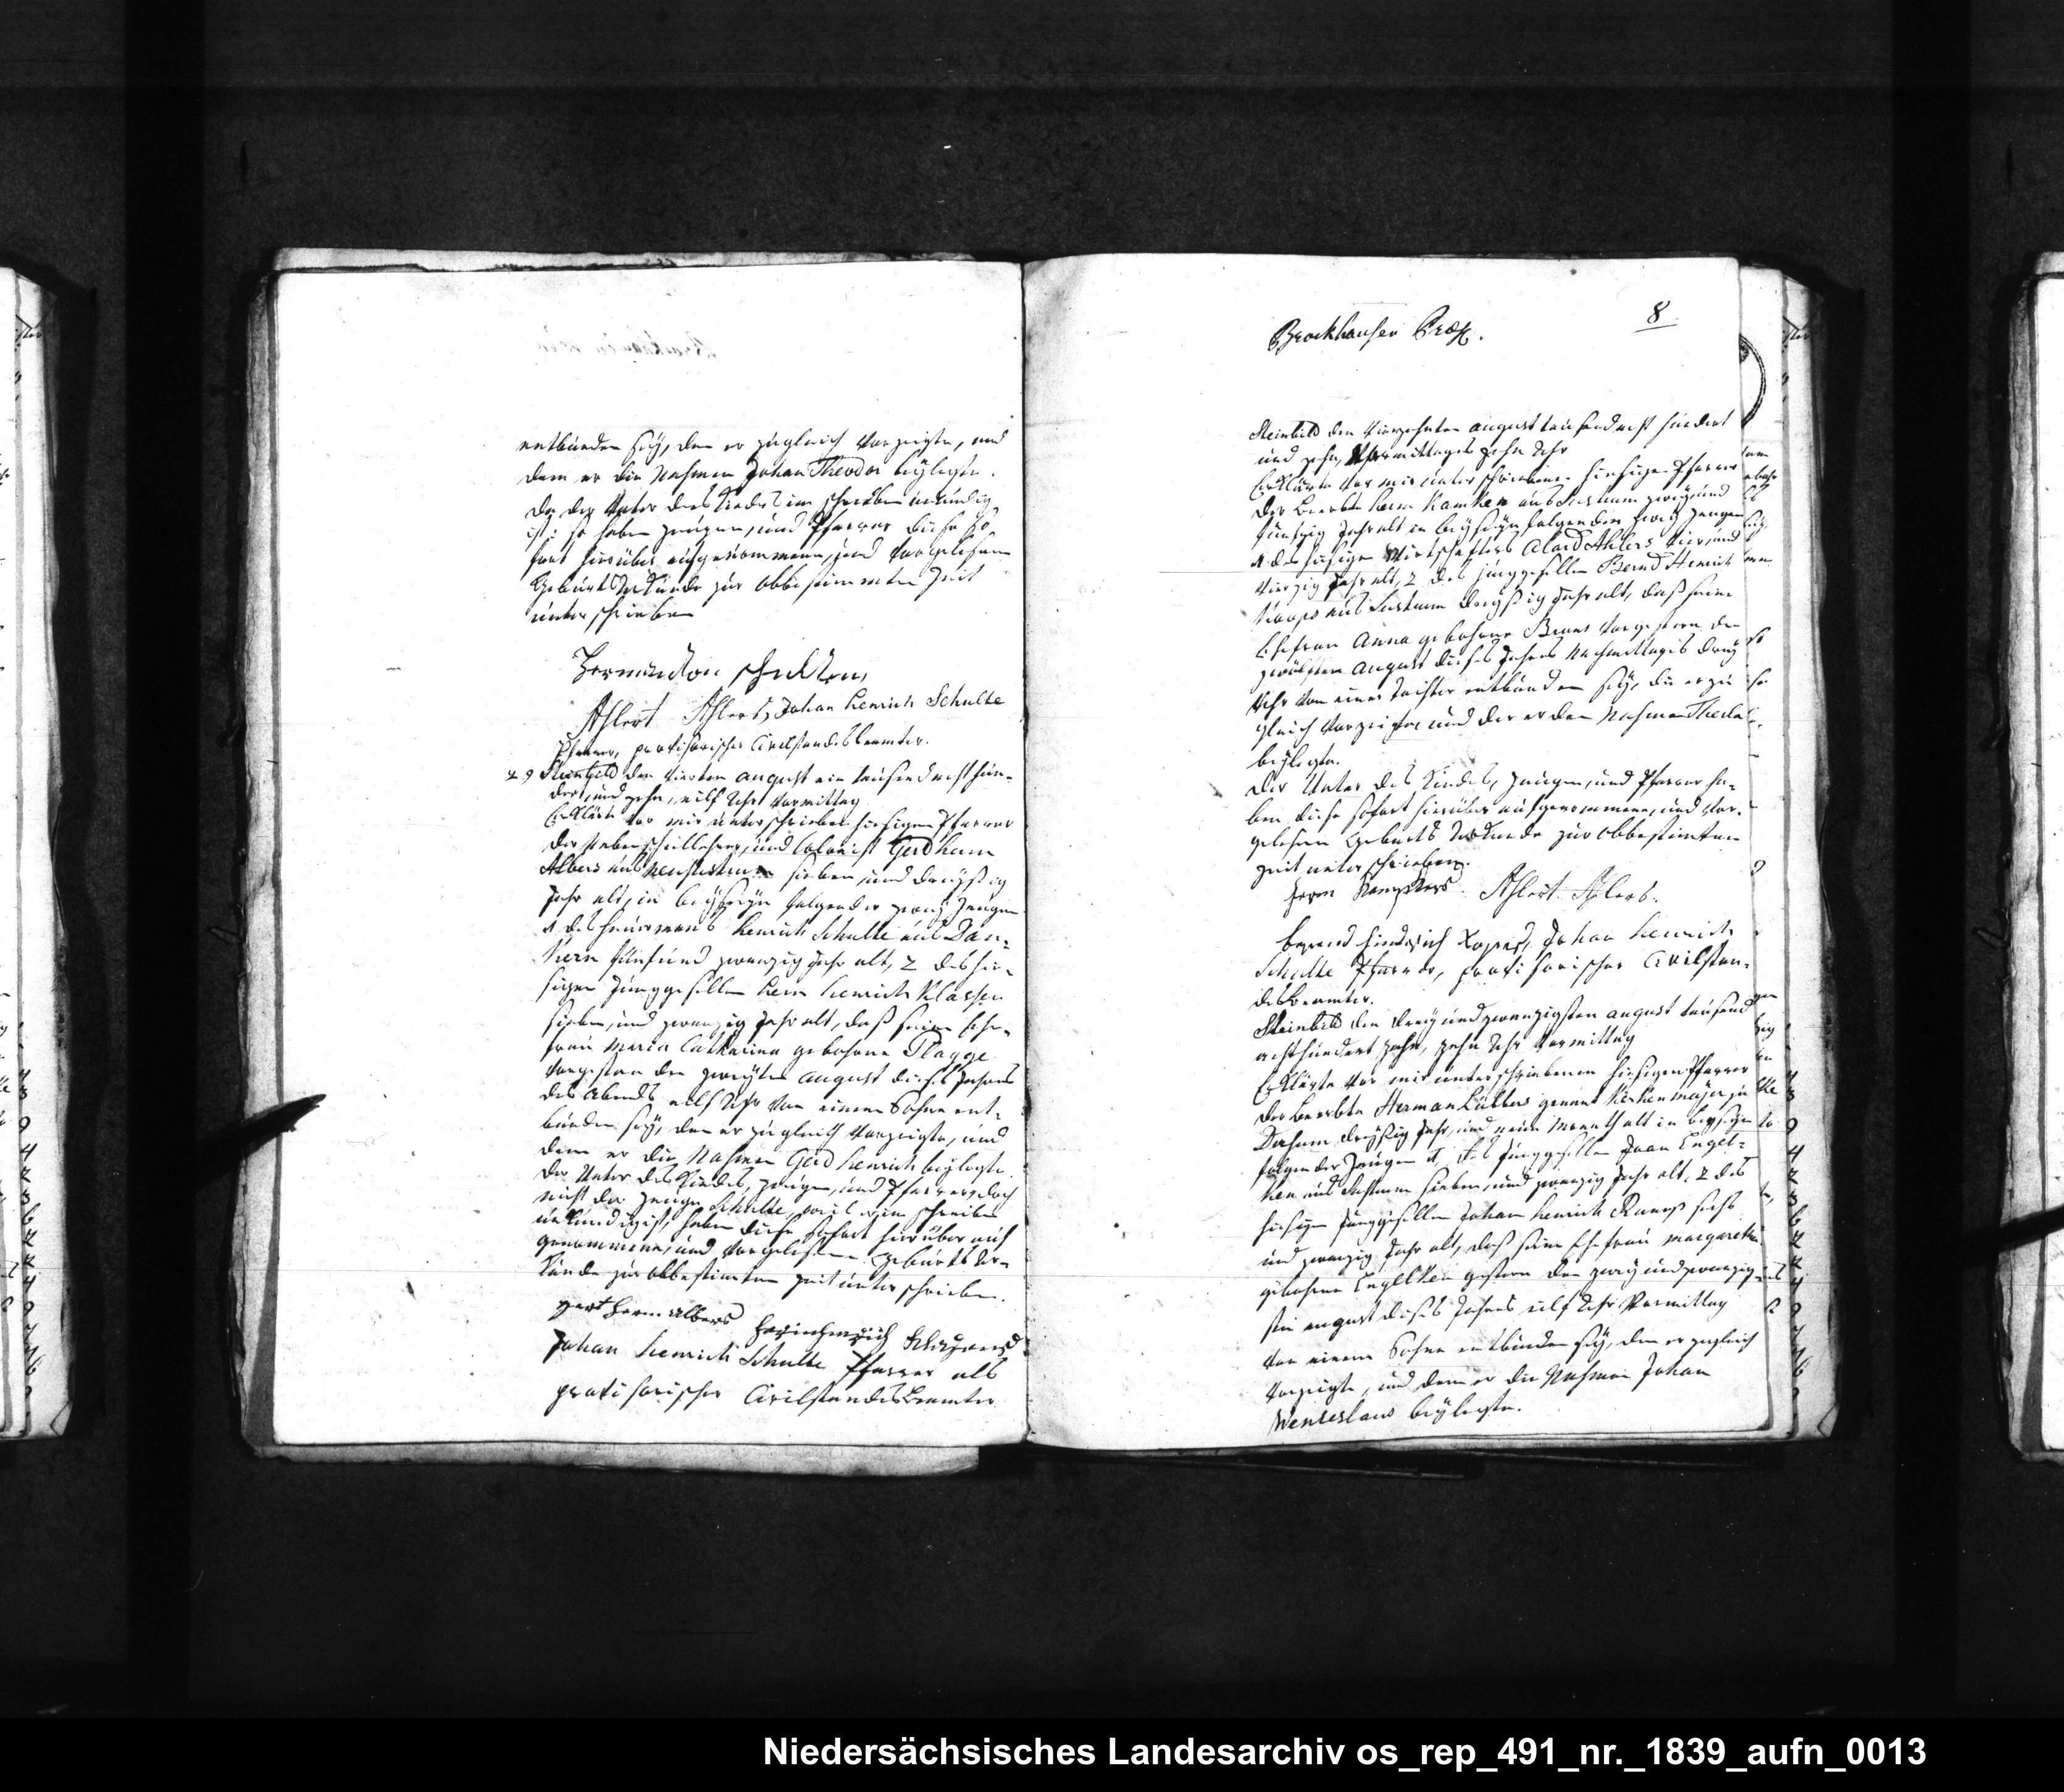 entbunden sey, den er zugleich vorzeigte, und
dem er die Nahmen Johan Theodor beylegte.
Da der Vater des Kindes im schreiben unkundig
ist, so haben Zeugen, und Pfarrer diese so
fort hierüber aufgenommene, und vorgelesene
Geburts Urkunde zur obbestimmten Zeit
unterschrieben
Ahlert Ahlers, Johan Henrich Schulte
Pfarrer, provisorischer Civilstandesbeamter.
Steinbild den vierten august ein tausend acht hun-
dert, und zehn, eilf Uhr Vormittag
Erklärte vor mir unterschrieben hiesigen Pfarrer
der Nebenschullehrer, und Colonist Gerd Herm
Albers aus sieben, und dreyßig
Jahr alt, in beyseyn folgender zwey Zeugen
1 des Heuermans Henrich Schulte aus Dan-
kern fünf und zwanzig Jahr alt, 2 des hie-
sigen Junggesellen Herm Henrich Klassen
sieben, und zwanzig Jahr alt, daß seine Ehe-
frau Maria Catharina gebohrne Plagge
vorgestern den zweyten august dieses Jahres
des Abends eilf Uhr von einem Sohne ent-
bunden sey, den er zugleich vorzeigte, und
dem er die Nahmen Gerd Henrich beylegte.
Der Vater des Kindes, Zeugen, und Pfarrer, doch
nicht der Zeuge Schulte, weil er im schreiben
unkundig ist, haben diese sofort hierüber auf
genommene, und vorgelesene Geburts Ur-
kunde zur obbestimten Zeit unterschrieben.
gert herm albers
Johan Henrich Schulte Pfarrer als
provisorischer Civilstandesbeamter
8
Brockhauser Prox.
Steinbild den vierzehnten august tausend acht hundert
und zehn, Vormittages zehn Uhr
Erklärte vor mir unterschriebenen hiesigen Pfarrer
der Beerbte Herm Kamken aus Sustrum zwey und
fünfzig Jahr alt in beyseyn folgender zwey Zeugen
1 des hiesigen Wirtschafters Alard Ahlers vier, und
vierzig Jahr alt, 2 des Junggesellen Bernd Henrich
Koops aus Sustrum dreyßig Jahr alt, daß seine
Ehefrau Anna gebohrne Bruns vorgestern den
zwölften August dieses Jahres Nachmittages drey
Uhr von einer Tochter entbunden sey, die er zu
gleich vorzeigte und der er den Nahmen
beylegte.
Der Vater des Kindes, Zeugen, und Pfarrer ha-
ben diese sofort hierüber aufgenommene, und vor-
gelesene Geburts Urkunde zur obbestimten
Zeit unterschrieben.
Herm Ahlert Ahlers.
Johan Henrich
Schulte Pfarrer, provisorischer Civilstan-
desbeamter.
Steinbild den drey und zwanzigsten august tausend
achthundert zehn, zehn Uhr Vormittag
Erklärte vor mir unterschriebenen hiesigen Pfarrer
der Beerbte Herman Lübbers genant Kerkenmajer zu
Dersum dreyßig Jahr, und neun Monath alt in beyseyn
folgender Zeugen 1 des Junggesellen Jaan Engel-
ken aus Sustrum sieben, und zwanzig Jahr alt, 2 des
hiesigen Junggesellen Johan Henrich sechs
und zwanzig Jahr alt, daß seine Ehefrau Margaretha
gebohrne Engelken gestern den zwey und zwanzig-
sten august dieses Jahres eilf Uhr Vormittag
von einem Sohne entbunden sey, den er zugleich
vorzeigte, und dem er die Nahmen Johan
Wenzeslaus beylegte.
Niedersächsisches Landesarchiv os_rep_491_nr._1839_aufn_0013